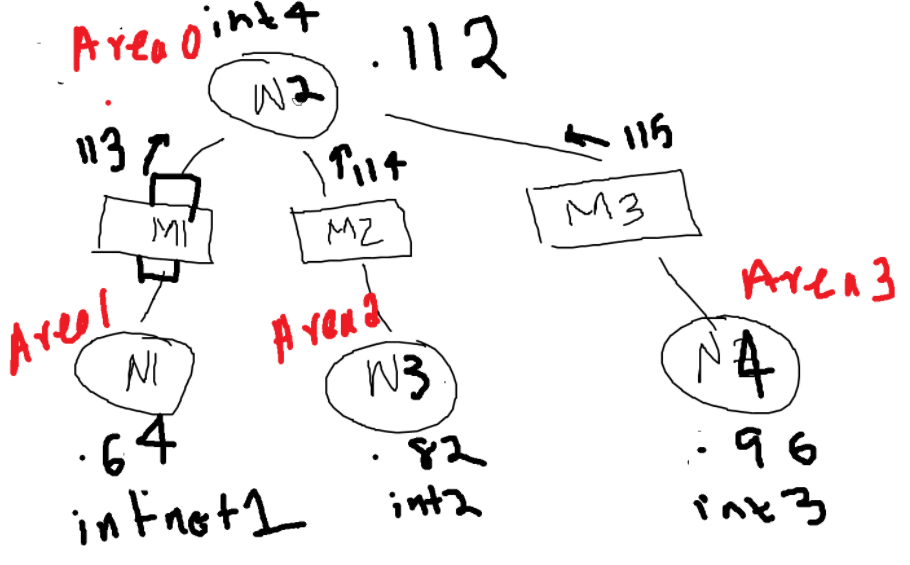 Area 0 int4
.112
N2
113
114
115
M1
M2
M3
Area1
Area 2
Area 3
N1
N3
N4
.64
.82
.96
intnet1
int2
int3